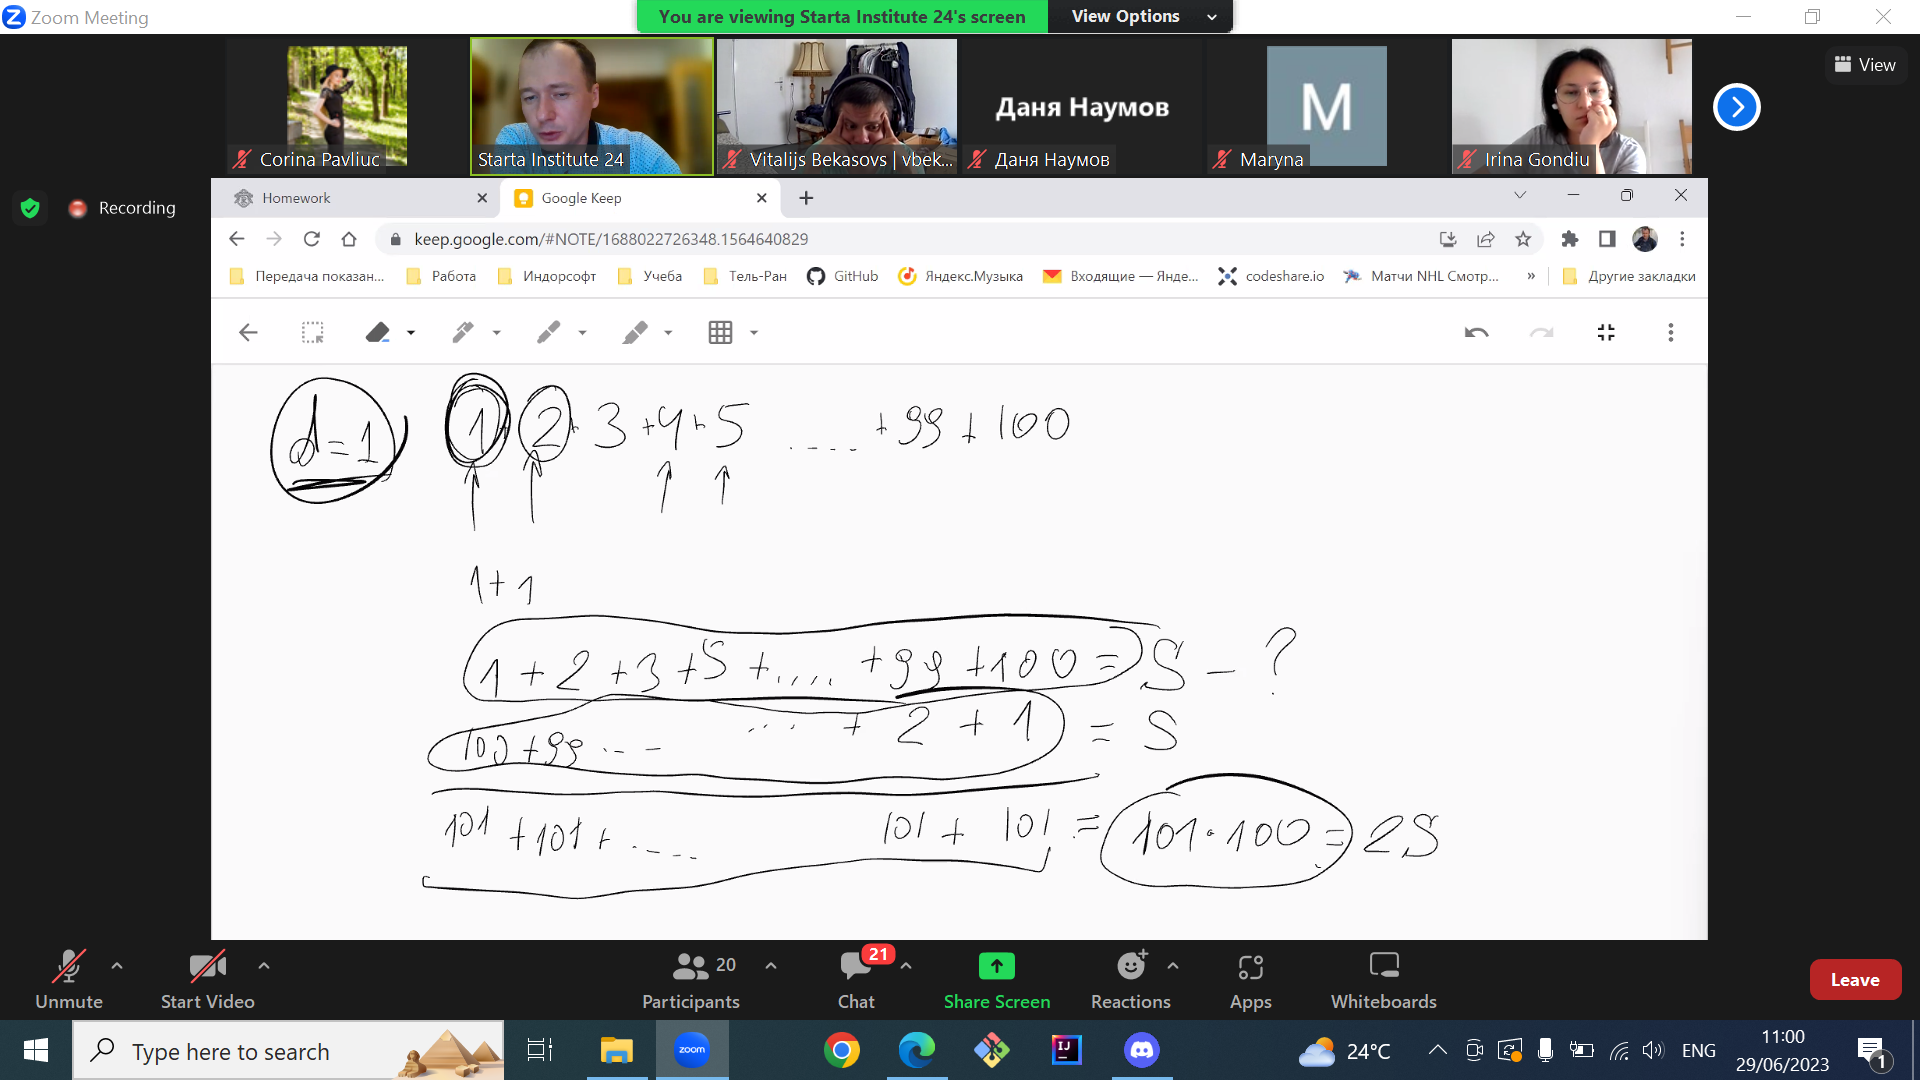 Zoom Meeting
You are viewing Starta Institute 24's screen View Options
Даня Наумов
M
View
Corina Pavliuc
Starta Institute 24
Vitalijs Bekasovs | vbek...
Даня Наумов
Maryna
Irina Gondiu
Recording
Homework
Google Keep
keep.google.com/#NOTE/1688022726348.1564640829
Передача показан... Работа Индорсофт Учеба Тель-Ран GitHub Яндекс.Музыка Входящие — Янде... codeshare.io Матчи NHL Смотр... » Другие закладки
d=1 1 + 2 + 3 + 4 + 5 ..... + 99 + 100
1+1
1 + 2 + 3 + 5 + ..... + 99 + 100 = S - ?
100 + 99 ... ... + 2 + 1 = S
101 + 101 + ..... 101 + 101 = 101 · 100 = 2S
Unmute
Start Video
20
Participants
21
Chat
Share Screen
Reactions
Apps
Whiteboards
Leave
Type here to search
zoom
IJ
24°C
ENG
11:00
29/06/2023
1